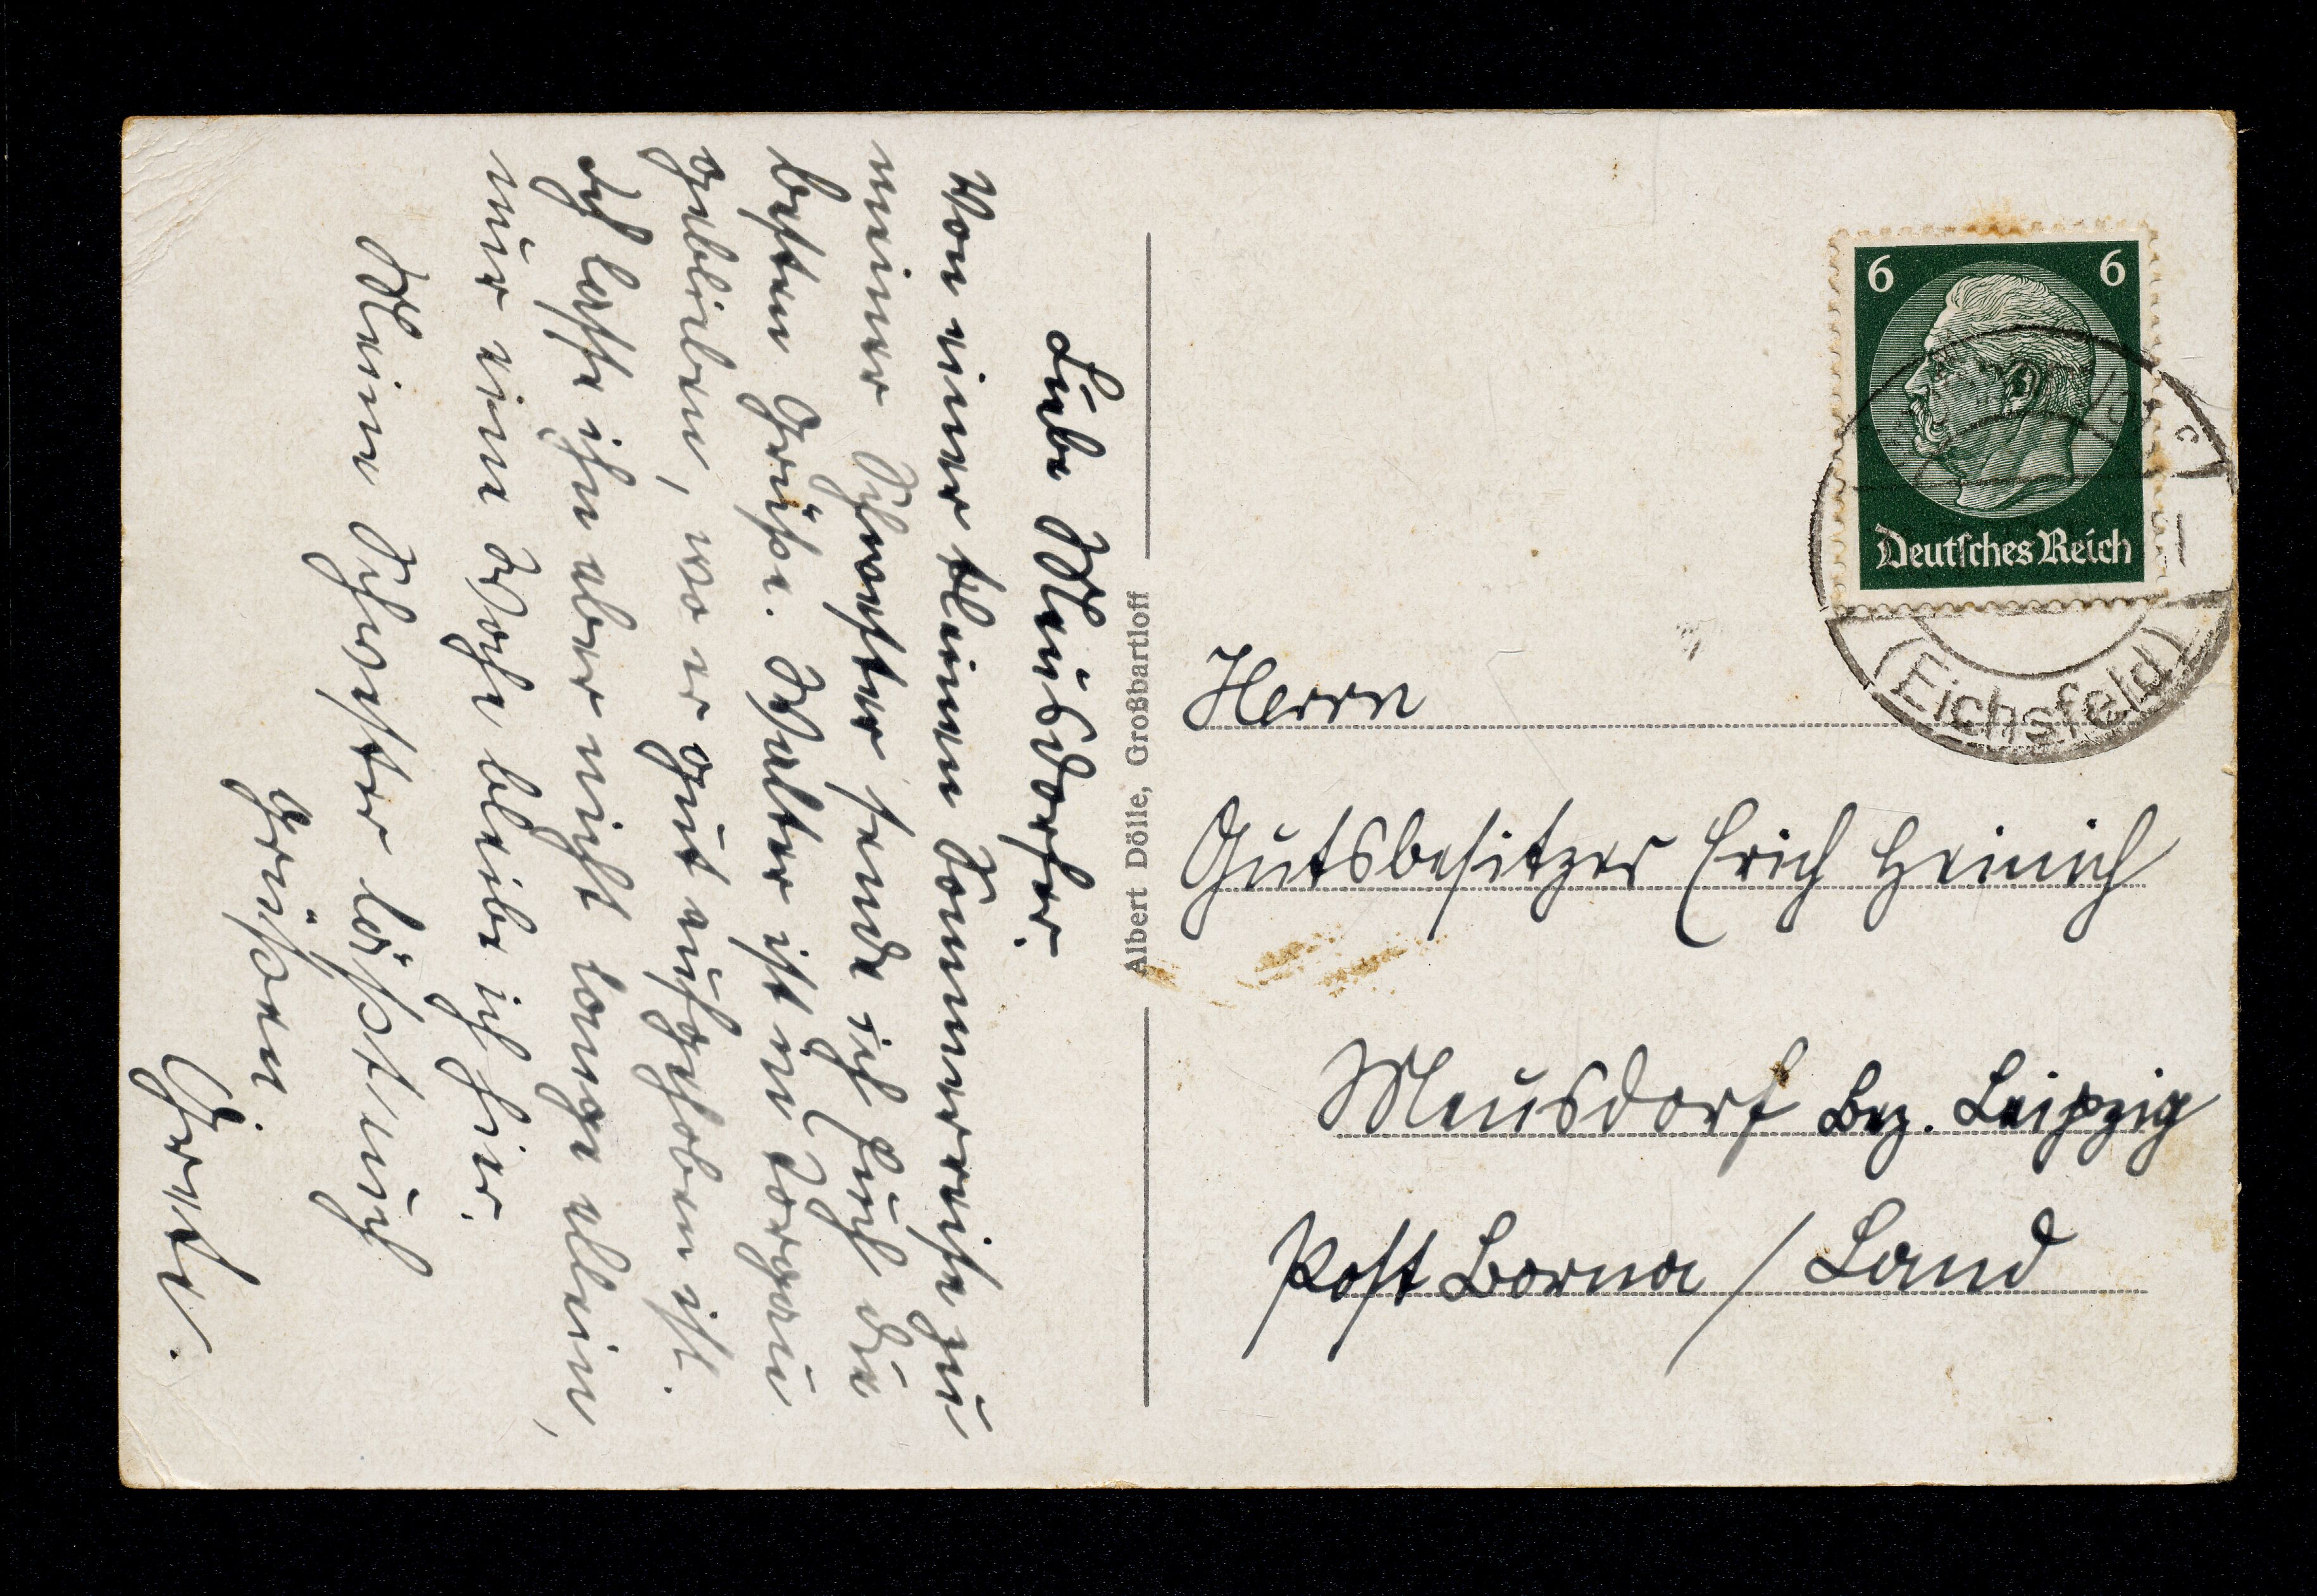 Liebe Meusdorfer.
Von einer kleinen Sommerreise zu
meiner Schwester sende ich Euch die
besten Grüße. Walter ist in Torgau
geblieben, wo er gut aufgehoben ist.
Ich lasse ihn aber nicht lange allein,
nur eine Woche bleibe ich hier.
Meine Schwester lässt Euch
grüßen
Grete.
Albert Dölle, Großbartloff
6 6
Deutsches Reich
(Eichsfeld)
Herrn
Gutsbesitzer Erich Heinich
Meusdorf Bez. Leipzig
Post Borna / Land